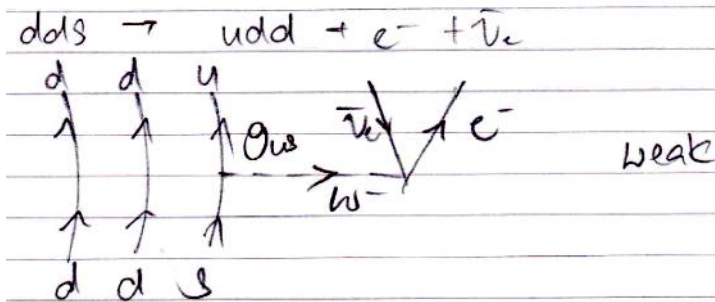 dds → udd + e⁻ + ν̄ₑ
d d u
ν̄ₑ e⁻
gus weak
W⁻
d d s